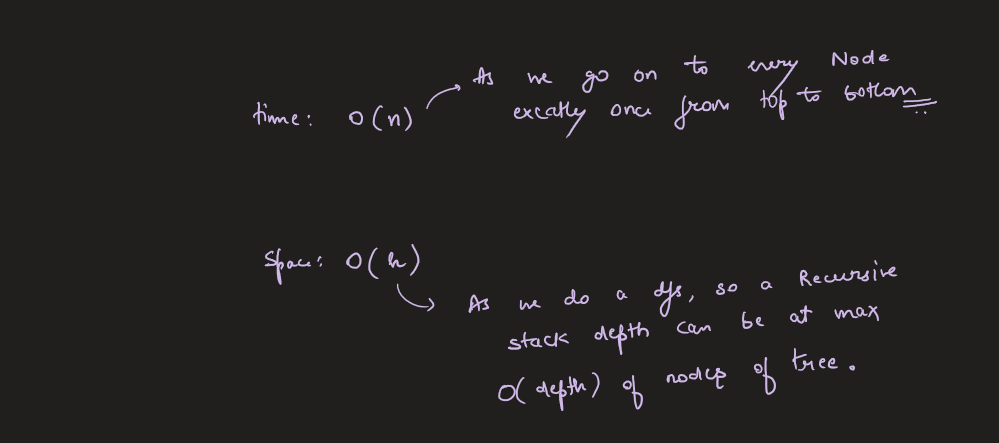 As we go on to every Node
time: O(n) excatly once from top to bottom
Space: O(h)
As we do a dfs, so a Recursive
stack depth can be at max
O(depth) of nodes of tree.